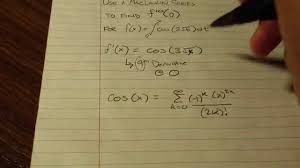 USE A MACLAURIN SERIES
TO FIND f⁽¹⁰⁾(0)
FOR f(x) = ∫ cos(35t) dt
f'(x) = cos(35x)
by 9th DERIVATIVE
cos(x) = ∑ k=0 ∞ (-1)^k (x)^2k / (2k)!